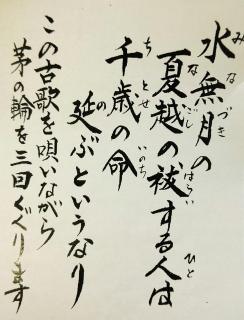 水無月の
夏越の祓する人は
千歳の命
延ぶというなり
この古歌を唄いながら
茅の輪を三回くぐります